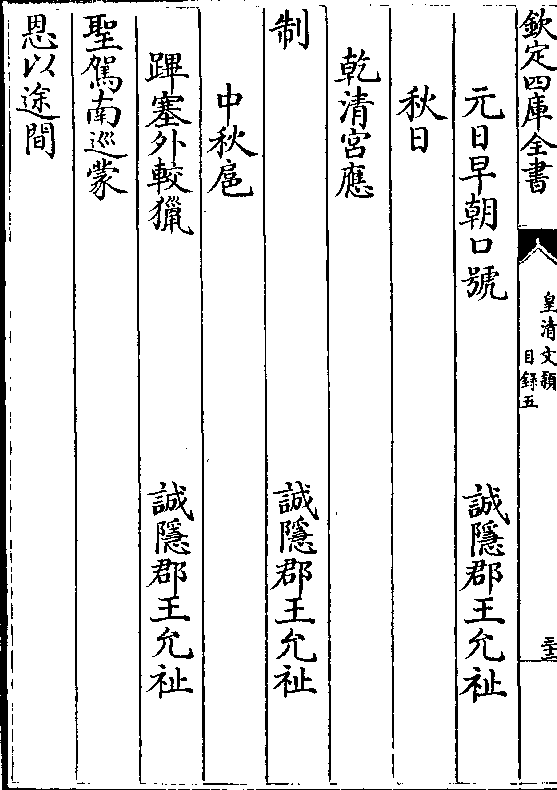 欽定四庫全書
皇清文穎
目録五
三十三
元日早朝口號 誠隱郡王允祉
秋日
乾清宮應
制 誠隱郡王允祉
中秋扈
蹕塞外較獵 誠隱郡王允祉
聖駕南巡蒙
恩以途間